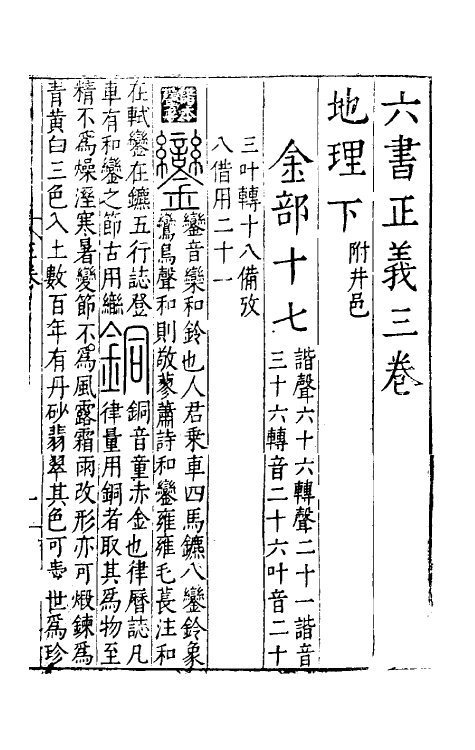 六書正義三卷
地理下 附井邑
金部十七 諧聲六十六轉聲二十一諧音
三十六轉音二十六叶音二十
三叶轉十八備攷
八借用二十一
鑾音欒和鈴也人君乘車四馬鑣八鑾鈴象
鸞鳥聲和則敬蓼蕭詩和鑾雍雍毛萇注和
在軾鑾在鑣五行誌登
車有和鑾之節古用䜌
銅音童赤金也律曆誌凡
律量用銅者取其爲物至
精不爲燥溼寒暑變節不爲風露霜雨改形亦可煅鍊爲
青黃白三色入土數百年有丹砂翡翠其色可 世爲珍